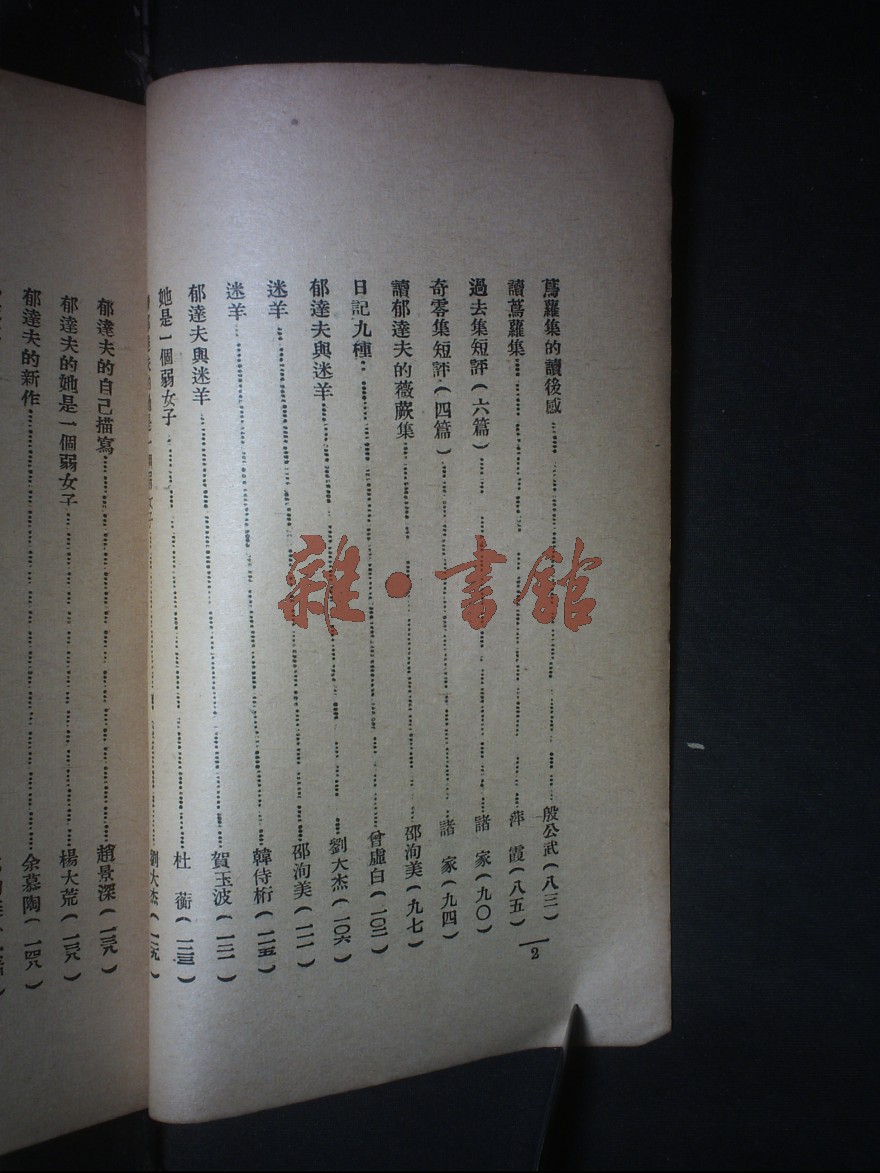 蔦蘿集的讀後感……殷公武(八三)
讀蔦蘿集……萍霞(八五)
過去集短評(六篇)……諸 家(九〇)
奇零集短評(四篇)……諸 家(九四)
讀郁達夫的薇蕨集……邵洵美(九七)
日記九種……曾虛白(一〇二)
郁達夫與迷羊……劉大杰(一〇六)
迷羊……邵洵美(一一一)
迷羊……韓侍桁(一一五)
郁達夫與迷羊……賀玉波(一二一)
她是一個弱女子……杜 衡(一二三)
劉大杰(一二九)
郁達夫的自己描寫……趙景深
郁達夫的她是一個弱女子……楊大荒
郁達夫的新作……余慕陶(一四八)
2
雜·書館